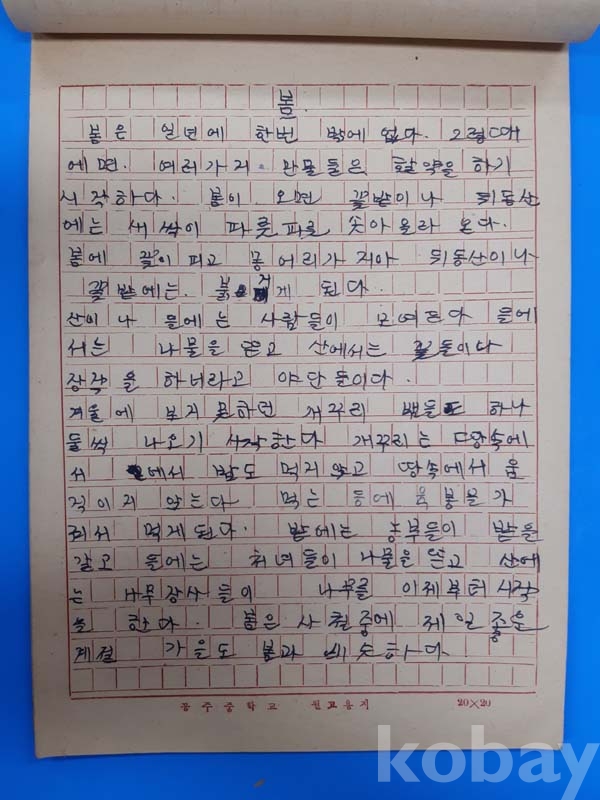 봄
봄은 일년에 한번 밖에 없다. 그렇대
에면. 여러가지 만물들은 활약을 하기
시작하다. 봄이 오면 꽃밭이나 뒤동산
에는 새싹이 파릇파릇 솟아 올라 온다.
봄에 꽃이 피고 봉어리가 지아 뒤동산이나
꽃밭에는. 붉게 된다.
산이나 들에는 사람들이 모여든다 들에
서는 나물을 뜯고 산에서는 꽃들이다
장작을 하너라고 야단들이다.
겨울에 보지 못하던 개꾸리 뱀들도 하나
둘씩 나오기 시작한다 개꾸리는 땅속에
서 밥도 먹지 않고 땅속에서 움
직이지 않는다 먹는
먹게된다. 밭에는 농부들이 밭을
갈고 들에는 처녀들이 나물을 뜯고 산에
는 나무장사들이 나무를 이제부터 시작
을 한다. 봄은 사철중에 제일 좋은
계절 가을도 봄과 비슷하다
공주중학교 원고용지 20×20
kobay